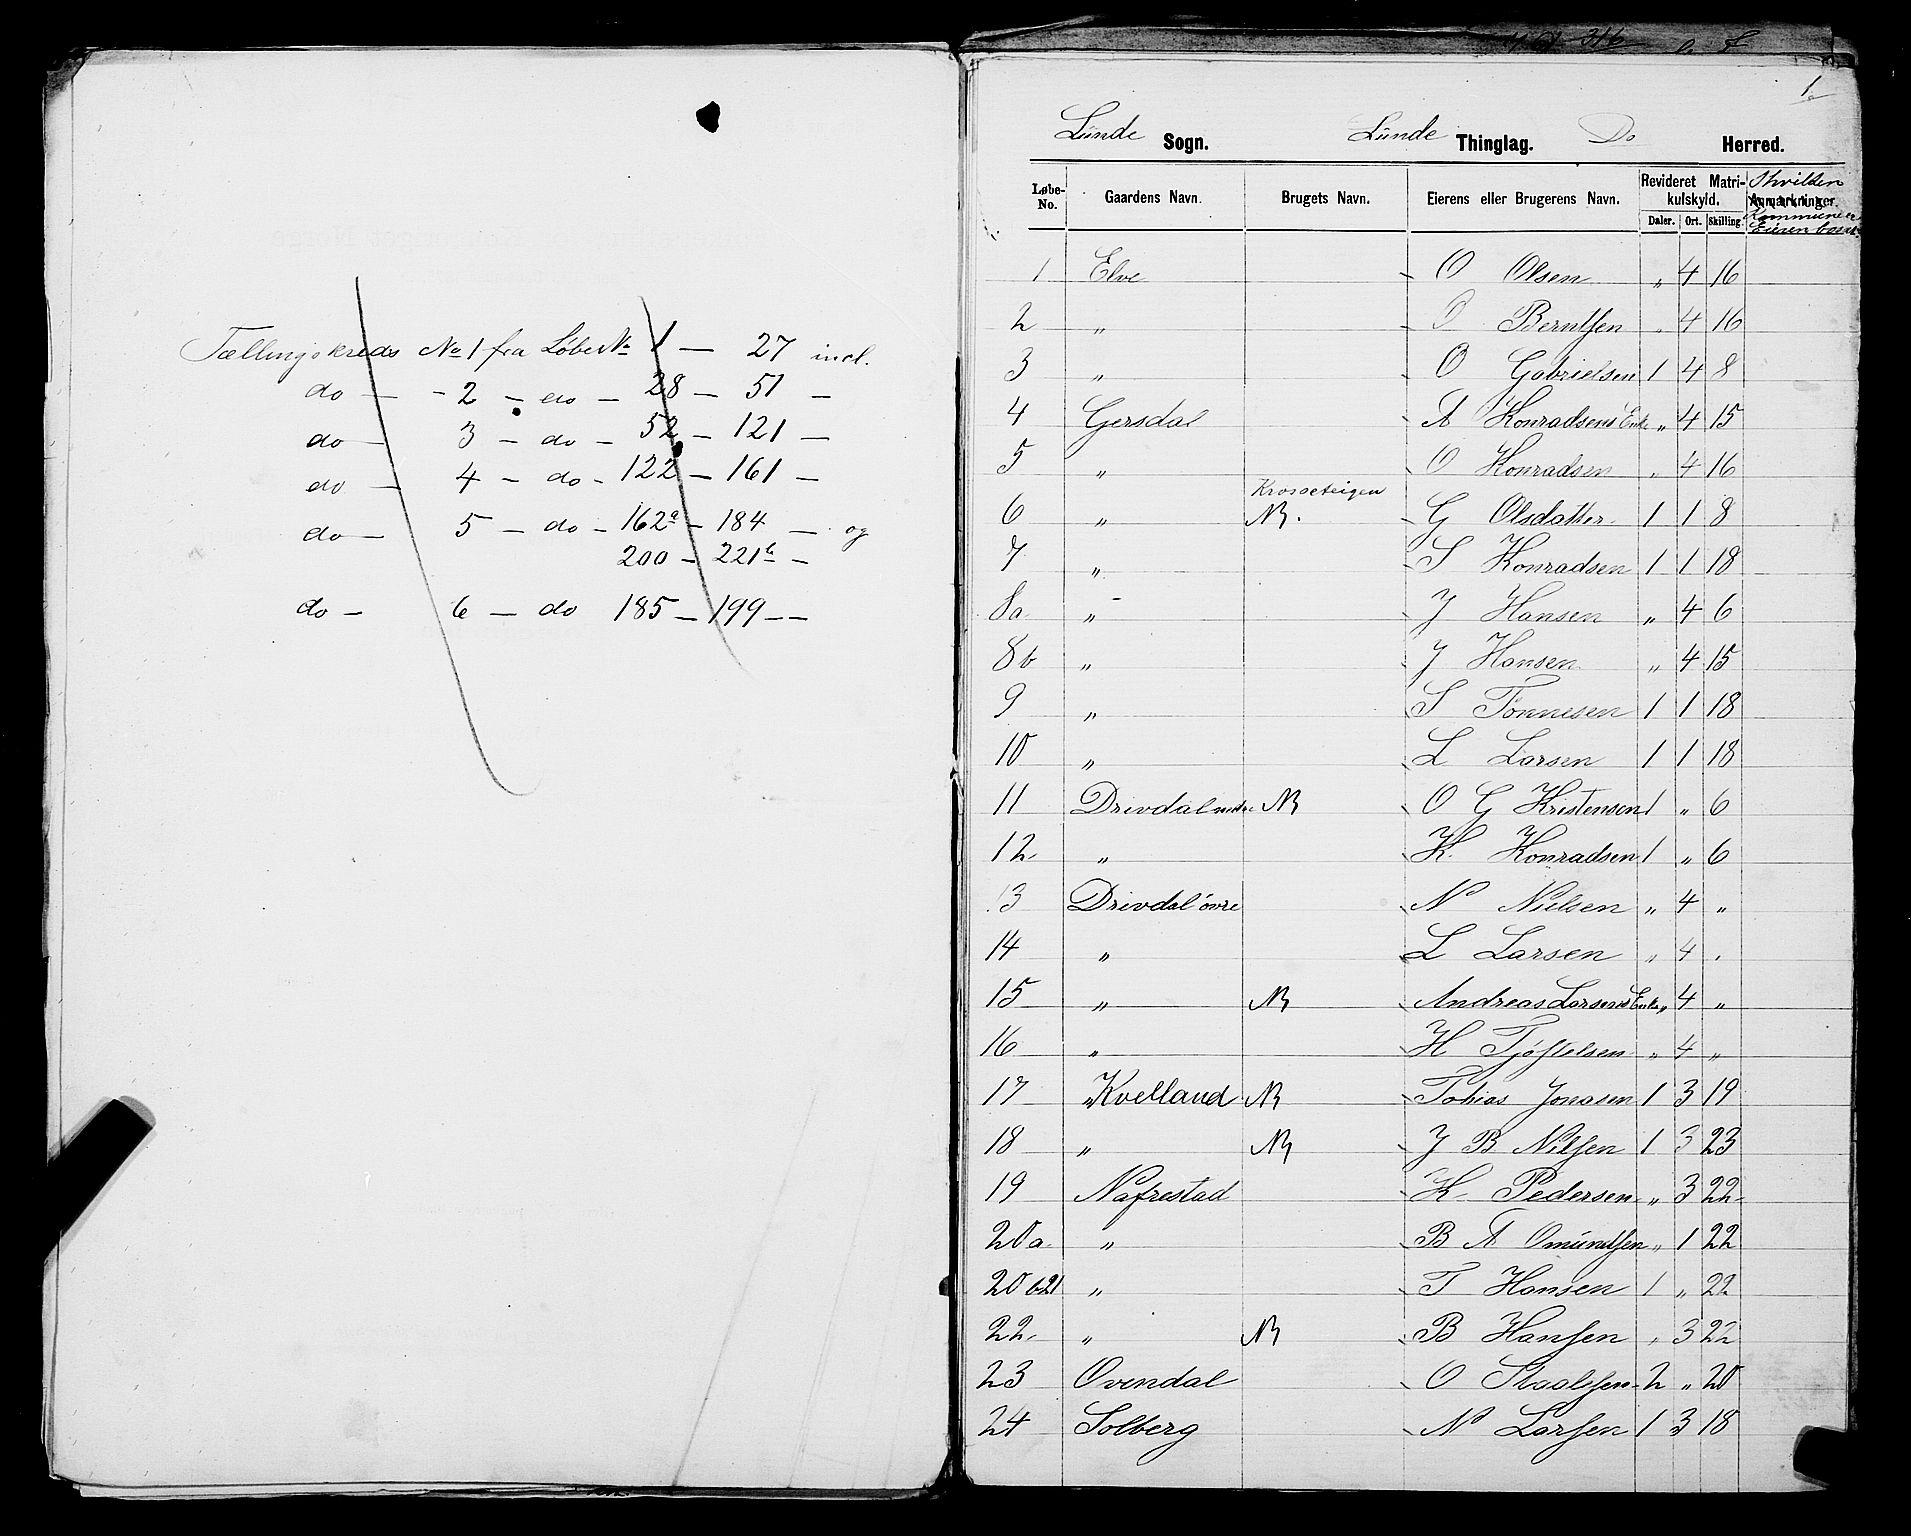 Tællingskreds No 1 fra Løbe No 1 — 27 incl.
do — - 2 — do — 28 — 51 —
do — 3 — do — 52 — 121 —
do — 4 — do - 122 — 161 —
do — 5 — do — 162a — 184 — og
200 — 221b —
do — 6 — do 185 — 199 — —
1
Lunde Sogn. Lunde Thinglag. Do Herred.
Løbe-No. Gaardens Navn. Brugets Navn. Eierens eller Brugerens Navn. Revideret Matrikulskyld. Anmærkninger.
Daler. Ort. Skilling
Kommune er Eieren bosat
1 Elve O Olsen " 4 16
2 " O Berntsen " 4 16
3 " O Gabrielsen 1 4 8
4 Gersdal A Konradsens Enke " 4 15
5 " O Konradsen " 4 16
6 " Krosseteigen NB. G Olsdatter 1 1 8
7 " S Konradsen 1 1 18
8a " J Hansen " 4 6
8b " J Hansen " 4 15
9 " S Tonnesen 1 1 18
10 " L Larsen 1 1 18
11 Drivdal nedre NB O G Kristensen 1 " 6
12 " K. Konradsen 1 " 6
13 Drivdal övre N Nielsen " 4 "
14 " L Larsen " 4 "
15 " NB Andreas Larsens Enke " 4 "
16 " H Tjöstelsen " 4 "
17 " Kvelland NB Tobias Jonasen 1 3 19
18 " NB J B Nilsen 1 3 23
19 Nafrestad K. Pedersen " 3 22
20a " B A Omundsen " 1 22
20b 21 " T Hansen 1 " 22
22 " NB B Hansen " 3 22
23 Ovendal O Staalesen 2 " 20
24 Solberg N Larsen 1 3 18